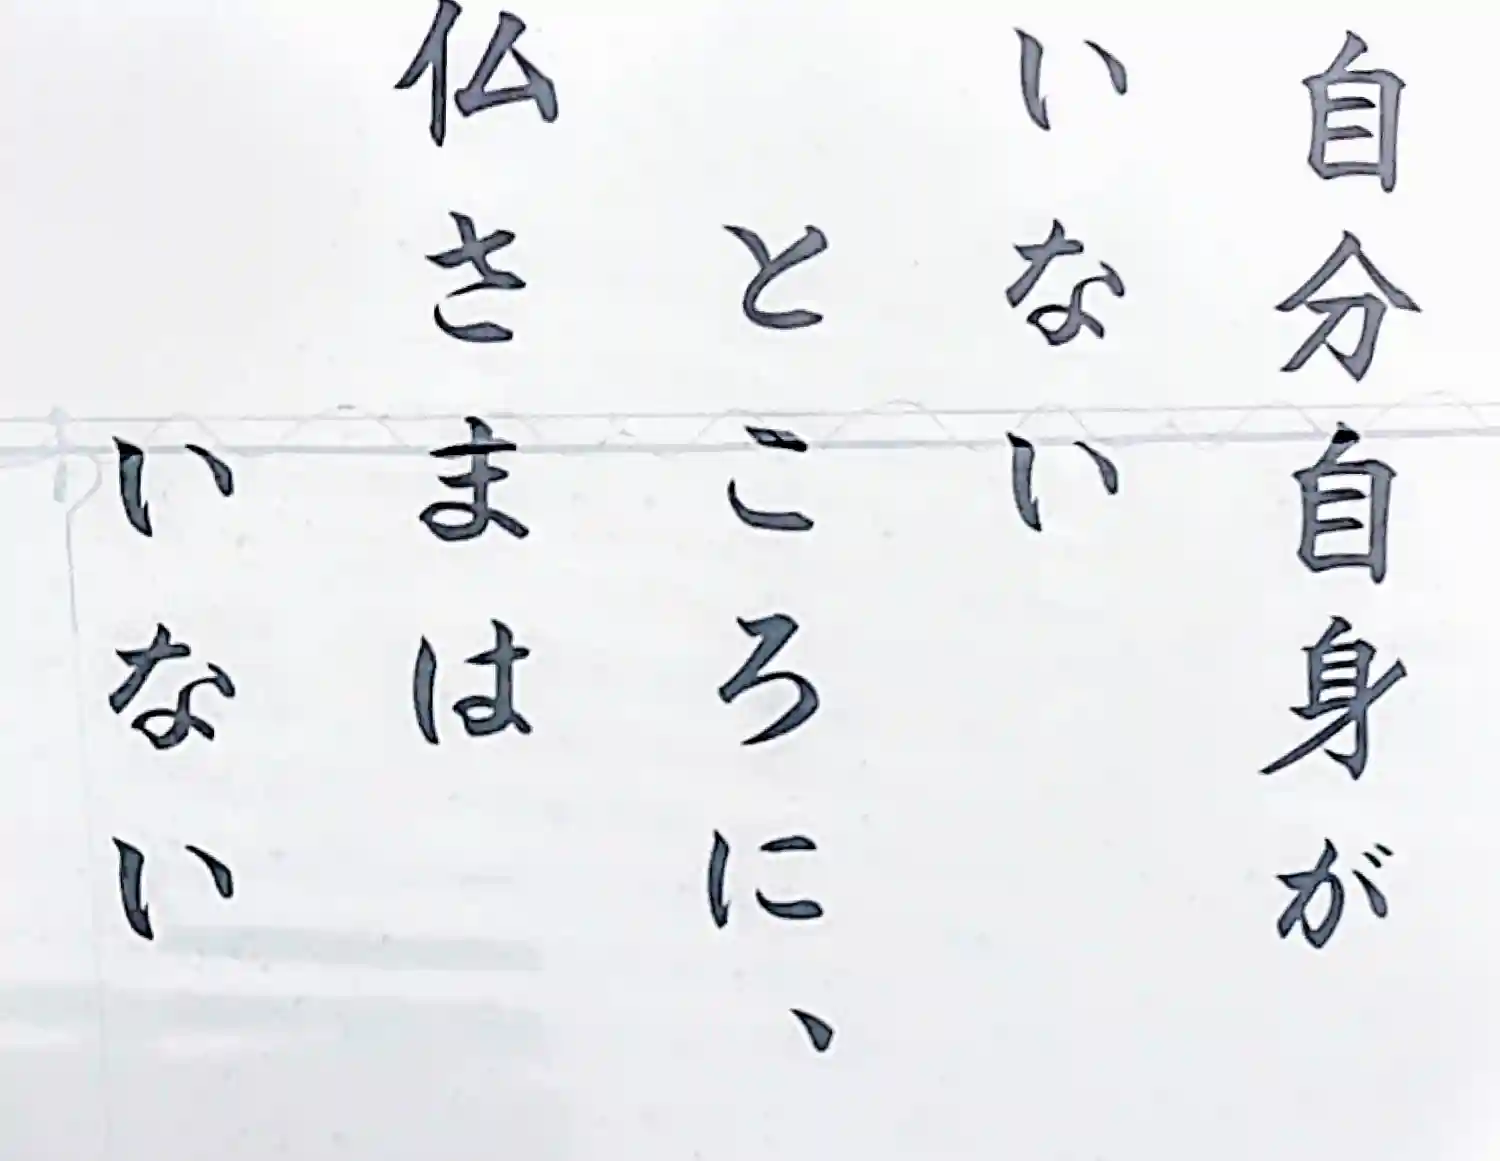 自分自身が
いない
ところに、
仏さまは
いない